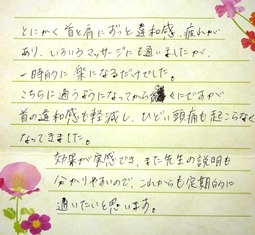 とにかく首と肩にずっと違和感、疲れが
あり、いろいろマッサージにも通いましたが、
一時的に楽になるだけでした。
こちらに通うようになってから々にですが
首の違和感も軽減し、ひどい頭痛も起こらなく
なってきました。
効果が実感でき、また先生の説明も
分かりやすいので、これからも定期的に
通いたいと思います。